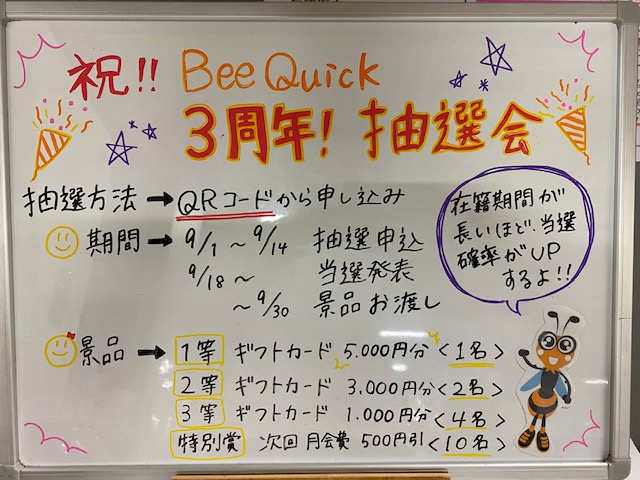 祝!! Bee Quick
3周年! 抽選会
抽選方法→QRコードから申し込み
期間→9/1～9/14 抽選申込
9/18～ 当選発表
～9/30 景品お渡し
在籍期間が
長いほど、当選
確率がUP
するよ!!
景品→1等 ギフトカード 5.000円分<1名>
2等 ギフトカード 3.000円分<2名>
3等 ギフトカード 1.000円分<4名>
特別賞 次回 月会費 500円引<10名>